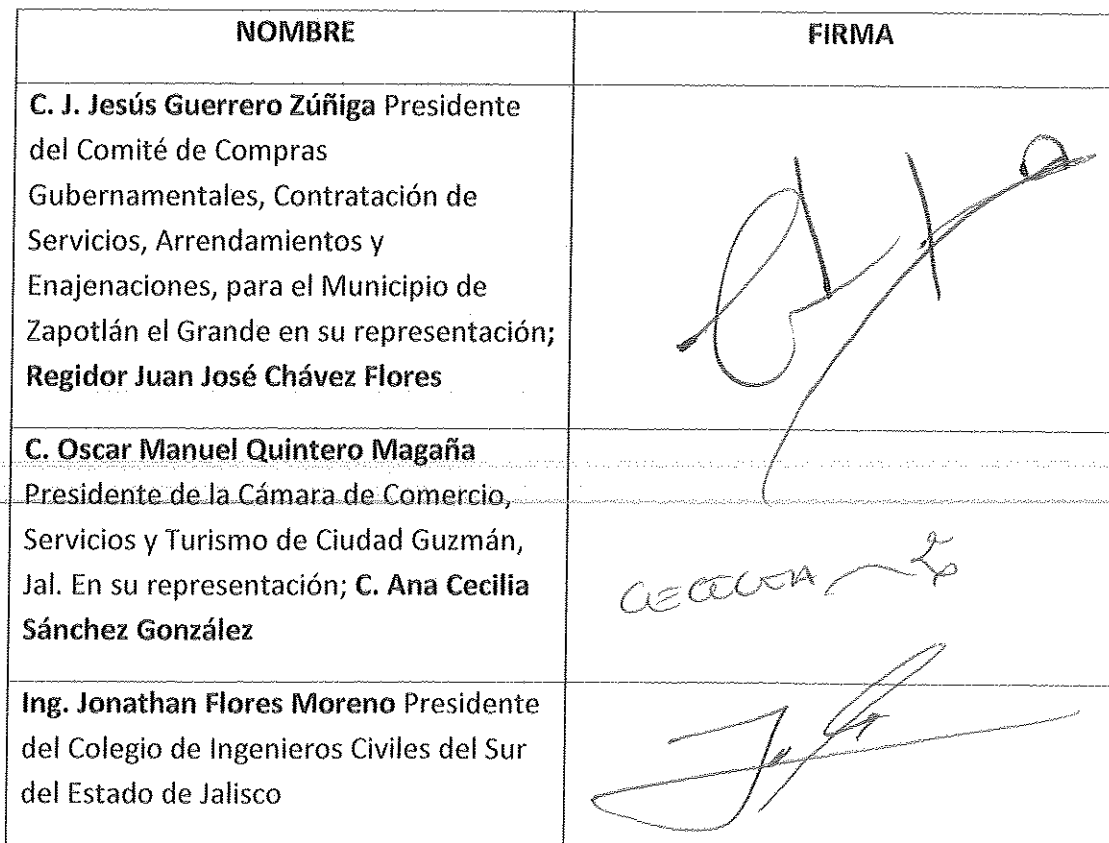 NOMBRE
FIRMA
C. J. Jesús Guerrero Zúñiga Presidente
del Comité de Compras
Gubernamentales, Contratación de
Servicios, Arrendamientos y
Enajenaciones, para el Municipio de
Zapotlán el Grande en su representación;
Regidor Juan José Chávez Flores
C. Oscar Manuel Quintero Magaña
Presidente de la Cámara de Comercio,
Servicios y Turismo de Ciudad Guzmán,
Jal. En su representación; C. Ana Cecilia
Sánchez González
Ing. Jonathan Flores Moreno Presidente
del Colegio de Ingenieros Civiles del Sur
del Estado de Jalisco